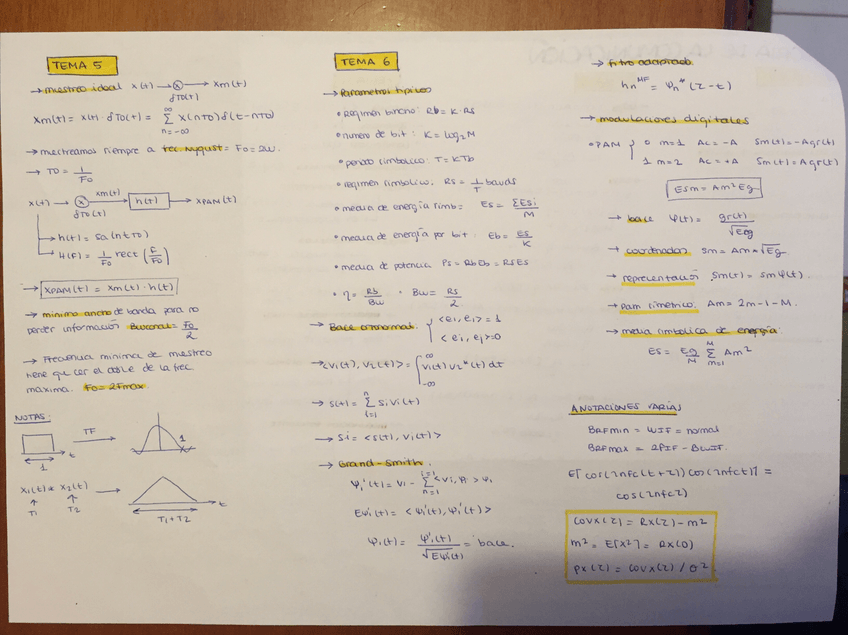 TEMA 5
→ muestreo ideal x(t) → ⊗ → xm(t)
δTO(t)
xm(t) = x(t) · δTO(t) = ∑ x(nTO) δ(t-nTO)
n=-∞
∞
→ muestreamos siempre a frec Nyquist = Fo = 2W.
→ TO = 1/Fo
x(t) → ⊗ xm(t) → h(t) → xPAM(t)
δTO(t)
→ h(t) = sa(πtTO)
→ H(F) = 1/Fo rect (F/Fo)
→ xPAM(t) = xm(t) · h(t)
→ minimo ancho de banda para no
perder información Bwcanal = Fo/2
→ Frecuencia minima de muestreo
tiene que ser el doble de la frec
maxima. Fo = 2Fmax
NOTAS:
TF
t
1
1
x1(t) * x2(t) → t
T1 T2
T1+T2
TEMA 6
→ Parametros tipicos
• Regimen binario: Rb = K · Rs
• numero de bit: K = log2 M
• periodo simbolico: T = KTb
• regimen simbolico: Rs = 1/T bauds
• media de energía simb: Es = ∑Esi/M
• media de energía por bit: Eb = Es/K
• media de potencia Ps = RbEb = RsEs
• η = Rs/Bw • Bw = Rs/2
→ Base ortonormal. { <ei, ei> = 1
<ei, ej> = 0
→ <v1(t), v2(t)> = ∫ v1(t) v2*(t) dt
∞
-∞
→ s(t) = ∑ si vi(t)
n
i=1
→ si = <s(t), vi(t)>
→ Grand-Smith.
ψi'(t) = vi - ∑ <vi, ψi> ψi
i=1
n=1
Eψi'(t) = <ψi'(t), ψi'(t)>
ψi(t) = ψi'(t)/√Eψi'(t) = base.
→ filtro adaptado.
hn^MF = ψn*(τ-t)
→ modulaciones digitales
• PAM { 0 m=1 Ac = -A sm(t) = -Agr(t)
1 m=2 Ac = +A sm(t) = Agr(t)
Esm = Am² Eg
→ base ψ(t) = gr(t)/√Eg
→ coordenadas sm = Am · √Eg
→ representación sm(t) = sm ψ(t).
→ Pam simetrico. Am = 2m-1-M.
→ media simbolica de energía
Es = Eg/M ∑ Am²
M
m=1
ANOTACIONES VARIAS
BRFmin = WIF = normal
BRFmax = 2FIF - BLWIF.
E[cos(2πfc(t+τ)) cos(2πfct)] =
cos(2πfcτ)
covx(τ) = Rx(τ) - m²
m² = E[x²] = Rx(0)
ρx(τ) = covx(τ) / σ²